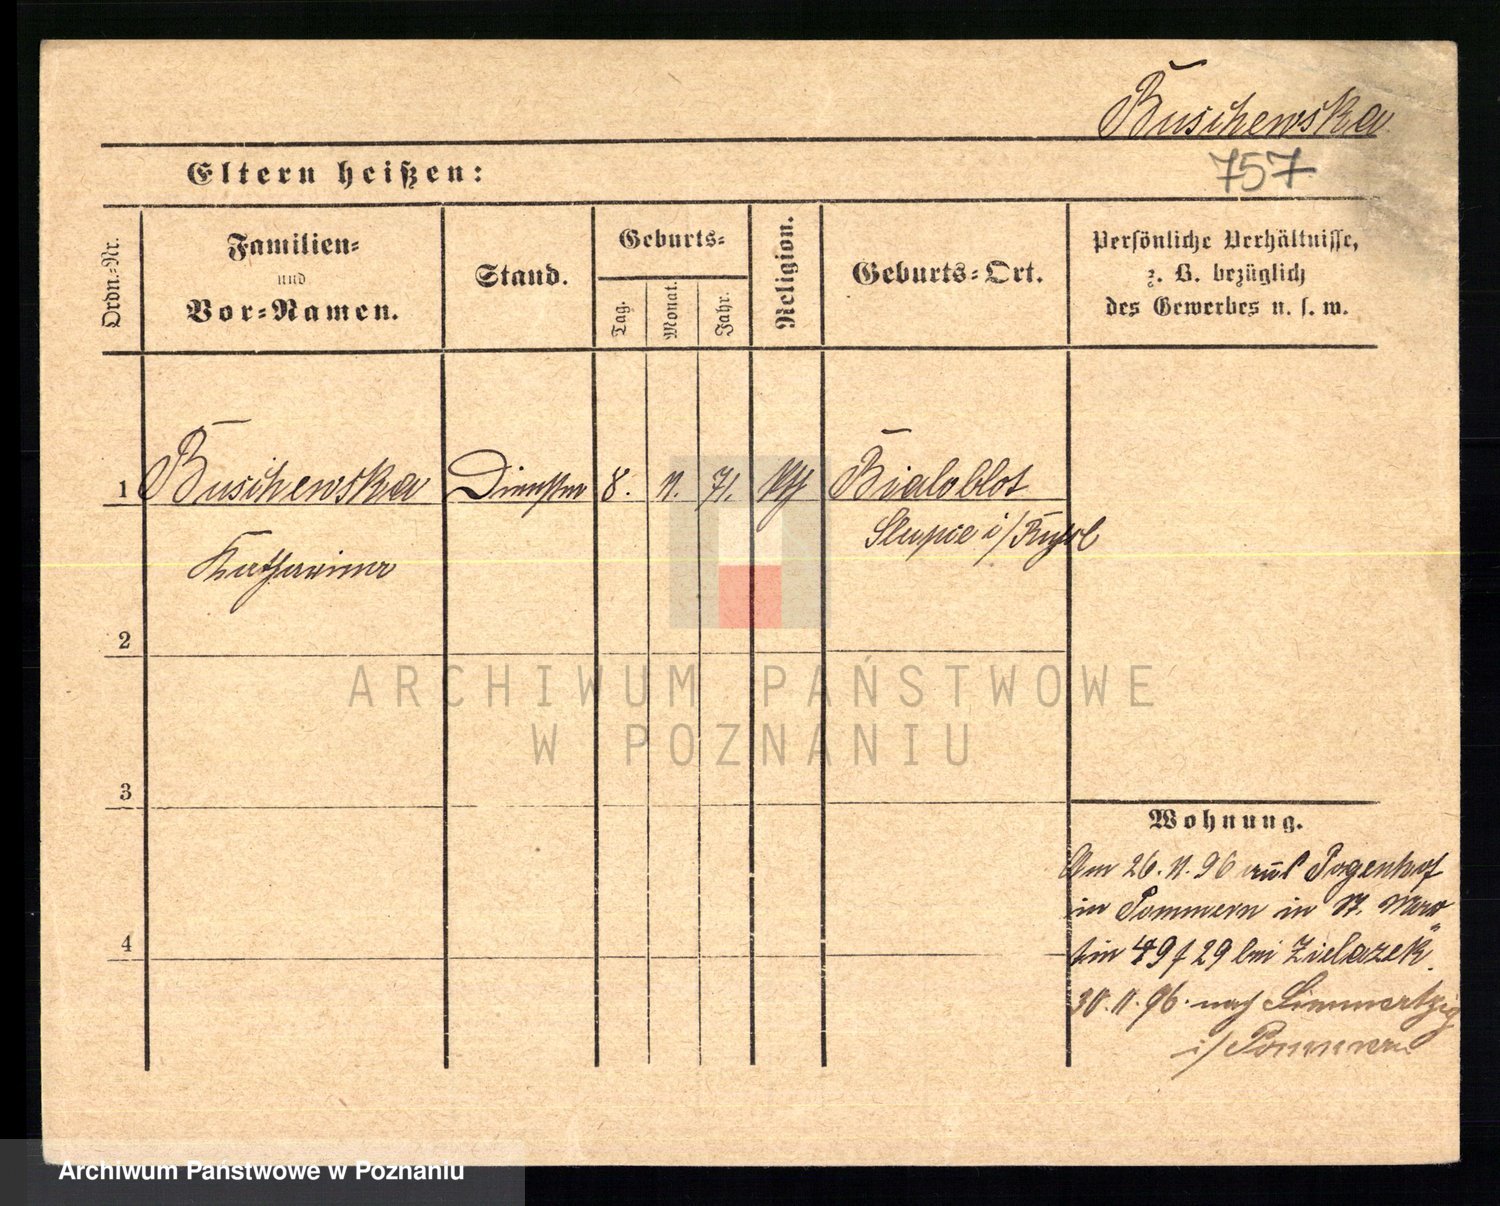 Buschewska
757
Eltern heißen:
Ordn.-Nr.
Familien-
und
Vor-Namen.
Stand.
Geburts-
Tag.
Monat.
Jahr.
Religion.
Geburts-Ort.
Persönliche Verhältnisse,
z. B. bezüglich
des Gewerbes u. s. w.
1 Buschewska 8. 11. 71. Bialoblot
Katharina Slupce i/
2
3
4
Wohnung.
Am 26. 11. 96 Pogenhof
in Pommern in St. Mar
tin 49 f 29 bei Zielazek.
30. 11. 96. nach
i/ Pommern
ARCHIWUM PAŃSTWOWE
W POZNANIU
Archiwum Państwowe w Poznaniu